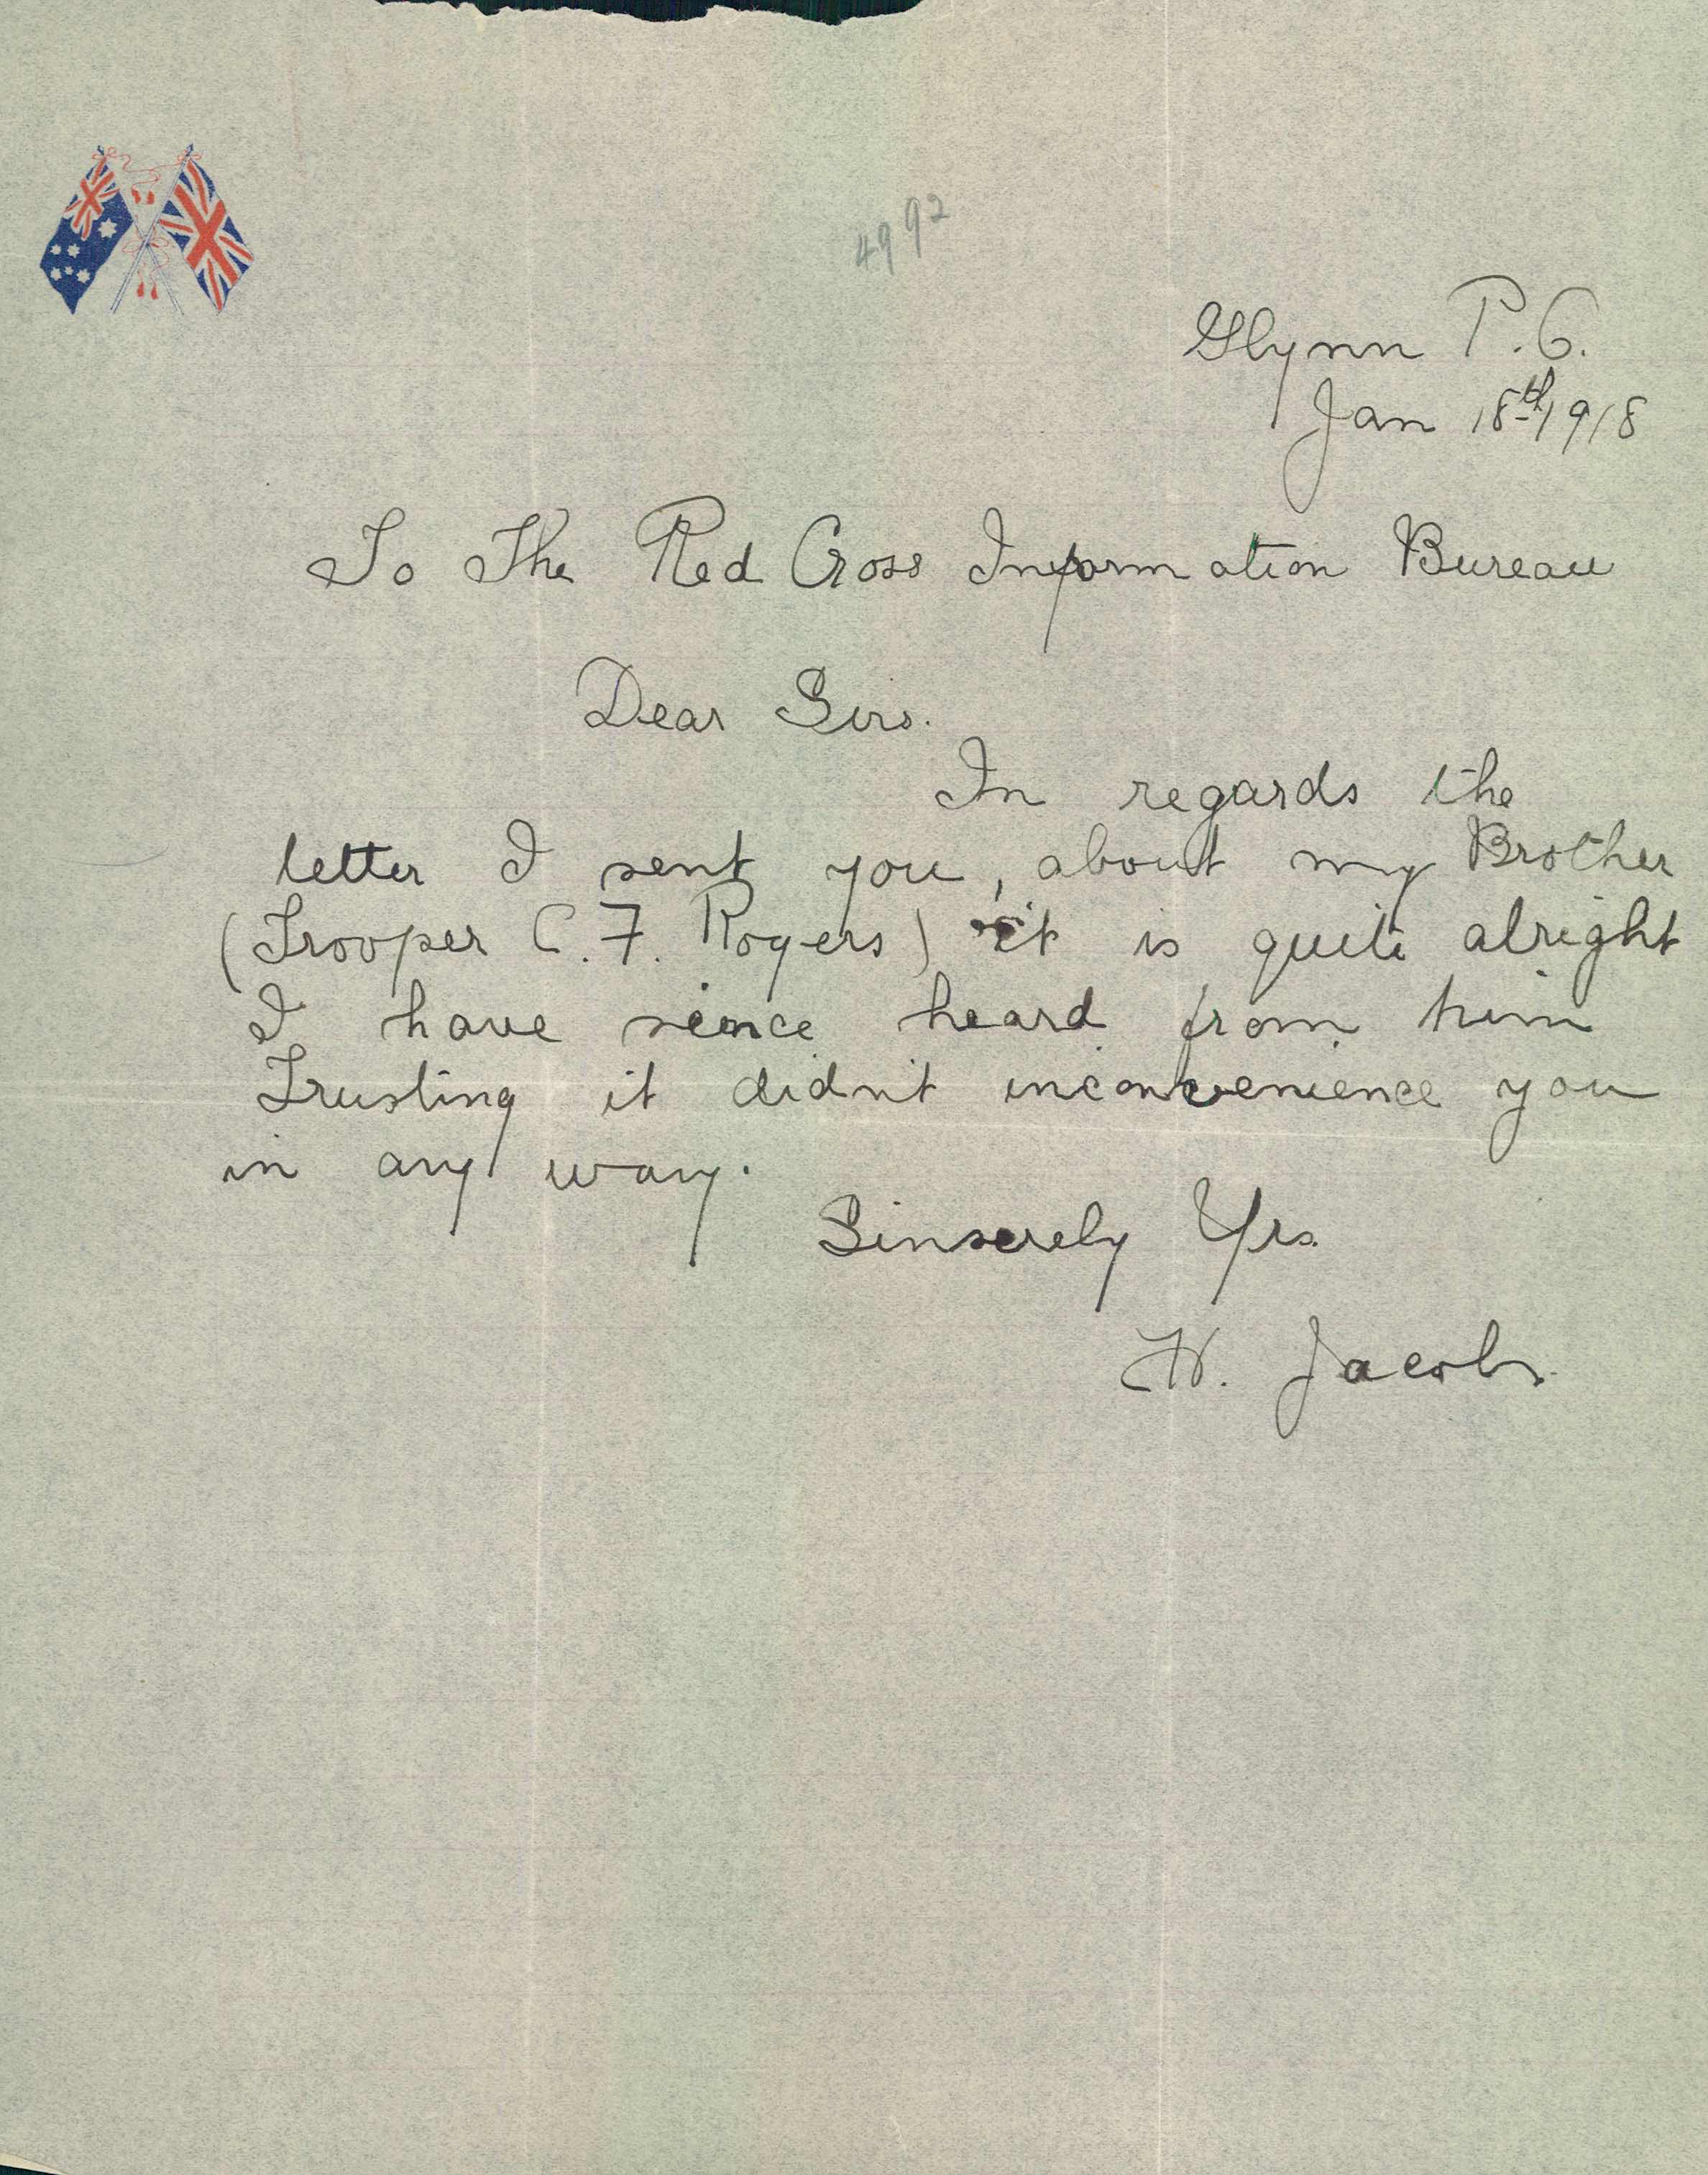 4992
Glynn P.O.
Jan 18th 1918
To The Red Cross Information Bureau
Dear Sirs.
In regards the
letter I sent you, about my Brother
(Trooper C. F. Rogers) it is quite alright
I have since heard from him
Trusting it didn't inconvenience you
in any way.
Sinserely Yrs.
W. Jacobs.